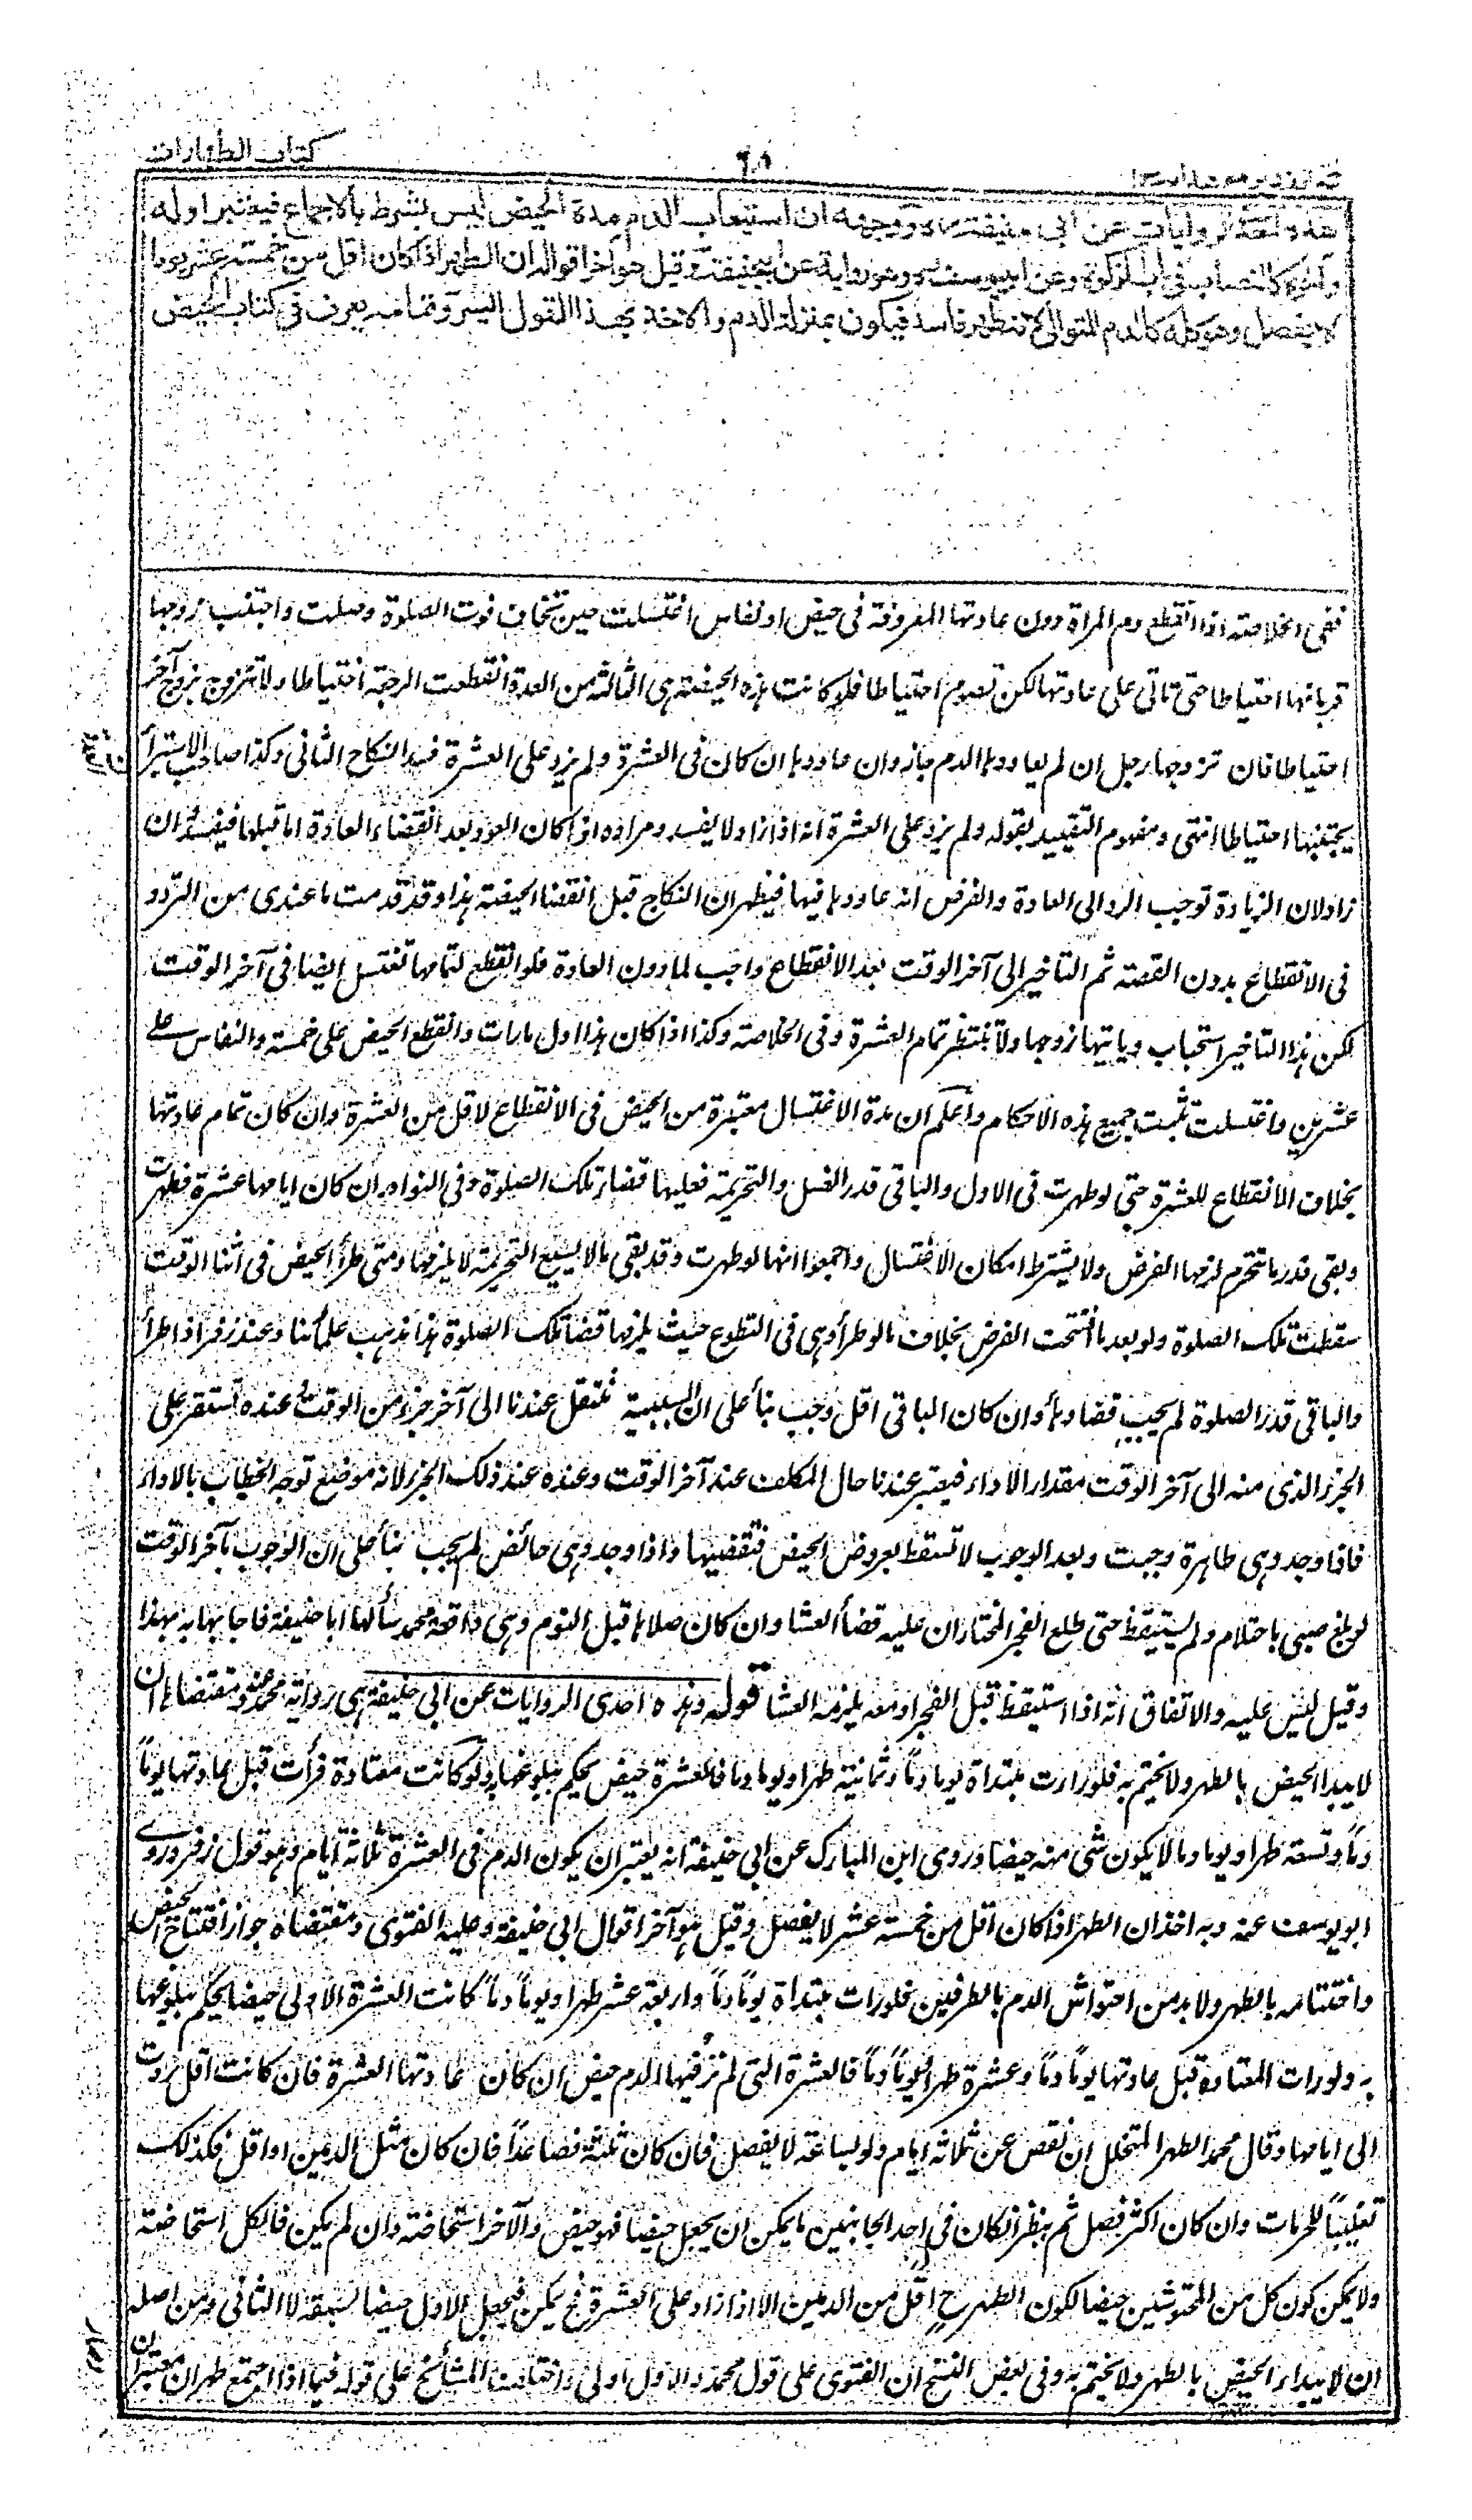 كتاب الطهارات
٦٥
هذه احدى الروايات عن ابي حنيفة ره ووجهه ان استيعاب الدم مدة الحيض ليس بشرط بالاجماع فيعتبر اوله
وآخره كالنصاب في باب الزكوة وعن ابي يوسف ره وهو رواية عن ابي حنيفة وقيل هو آخر اقواله ان الطهر اذا كان اقل من خمسة عشر يوما
لا يفصل وهو كله كالدم المتوالي لانه طهر فاسد فيكون بمنزلة الدم والاخذ بهذا القول ايسر وتمامه يعرف في كتاب الحيض
ففي الخلاصة اذا انقطع دم المراة دون عادتها المعروفة في حيض او نفاس اغتسلت حين تخاف فوت الصلوة وصلت واجتنب زوجها
قربانها احتياطا حتى تاتي على عادتها لكن تصوم احتياطا فلو كانت هذه الحيضة هي الثالثة من العدة انقطعت الرجعة احتياطا ولا تتزوج بزوج آخر
احتياطا فان تزوجها رجل ان لم يعاودها الدم جاز وان عاودها ان كان في العشرة ولم يزد على العشرة فسد النكاح الثاني وكذا صاحب الاستبراء
يجتنبها احتياطا انتهى ومفهوم التقييد بقوله ولم يزد على العشرة انه اذا زاد لا يفسد ومراده اذا كان العود بعد انقضاء العادة اما قبلها فيفسد وان
زاد لان الزيادة توجب الرد الى العادة والفرض انه عاودها فيها فيظهر ان النكاح قبل انقضاء الحيضة هذا وقد قدمت ما عندي من التردد
في الانقطاع بدون القصة ثم التاخير الى آخر الوقت بعد الانقطاع واجب لما دون العادة فلو انقطع لتمامها تغتسل ايضا في آخر الوقت
لكن هذا التاخير استحباب وياتيها زوجها ولا تنتظر تمام العشرة وفي الخلاصة وكذا اذا كان هذا اول ما رات وانقطع الحيض على خمسة والنفاس على
عشرين واغتسلت تثبت جميع هذه الاحكام واعلم ان مدة الاغتسال معتبرة من الحيض في الانقطاع لاقل من العشرة وان كان تمام عادتها
بخلاف الانقطاع للعشرة حتى لو طهرت في الاول والباقي قدر الغسل والتحريمة فعليها قضاء تلك الصلوة وفي النوادر ان كان ايامها عشرة فطهرت
وبقي قدر ما تتحرم لزمها الفرض ولا يشترط امكان الاغتسال واجمعوا انها لو طهرت وقد بقي ما لا يسع التحريمة لا يلزمها ومتى طرأ الحيض في اثنا الوقت
سقطت تلك الصلوة ولو بعد ما افتتحت الفرض بخلاف ما لو طرأ وهي في التطوع حيث يلزمها قضاء تلك الصلوة هذا مذهب علمائنا وعند زفر اذا طرأ
والباقي قدر الصلوة لم يجب قضاؤها وان كان الباقي اقل وجب بنأ على ان السببية تنتقل عندنا الى آخر جزء من الوقت وعنده تستقر على
الجزء الذي منه الى آخر الوقت مقدار الاداء فيعتبر عندنا حال المكلف عند آخر الوقت وعنده عند ذلك الجزء لانه موضع توجه الخطاب بالاداء
فاذا وجد وهي طاهرة وجبت وبعد الوجوب لا تسقط بعروض الحيض فتقضيها واذا وجد وهي حائض لم يجب بنأ على ان الوجوب بآخر الوقت
لو بلغ صبي باحتلام ولم يستيقظ حتى طلع الفجر المختار ان عليه قضأ العشا وان كان صلاها قبل النوم وهي واقعة محمد سألها ابا حنيفة فاجابه بهذا
وقيل ليس عليه والاتفاق انه اذا استيقظ قبل الفجر او معه يلزمه العشا قوله وهذه احدى الروايات عن ابي حنيفة هي رواية محمد عنه ومقتضاها ان
لا يبدا الحيض بالطهر ولا يختم به فلو رات مبتداة يوما دمًا وثمانية طهرا ويوما دما فالعشرة حيض يحكم ببلوغها به ولو كانت معتادة فرأت قبل عادتها يومًا
دمًا وتسعة طهرا ويوما دما لا يكون شي منه حيضا وروى ابن المبارك عن ابي حنيفة انه يعتبر ان يكون الدم في العشرة ثلاثة ايام وهو قول زفر وروى
ابو يوسف عنه وبه اخذ ان الطهر اذا كان اقل من خمسة عشر لا يفصل وقيل هو آخر اقوال ابي حنيفة وعليه الفتوى ومقتضاه جواز افتتاح الحيض
واختتامه بالطهر ولا بد من احتواش الدم بالطرفين فلو رات مبتداة يومًا دمًا واربعة عشر طهرا ويومًا دمًا كانت العشرة الاولى حيضا يحكم ببلوغها
به ولو رات المعتادة قبل عادتها يومًا دمًا وعشرة طهرا ويومًا دمًا فالعشرة التي لم تر فيها الدم حيض ان كان عادتها العشرة فان كانت اقل ردت
الى ايامها وقال محمد الطهر المتخلل ان نقص عن ثلاثة ايام ولو بساعة لا يفصل فان كان ثلثة فصاعدًا فان كان مثل الدمين او اقل فكذلك
تغليبًا للحرمات وان كان اكثر فصل ثم ينظر ان كان في احد الجانبين ما يمكن ان يجعل حيضا فهو حيض والآخر استحاضة وان لم يكن فالكل استحاضة
ولا يمكن كون كل من المحتوشين حيضا لكون الطهر ح اقل من الدمين الا اذا زاد على العشرة فح يمكن فيجعل الاول حيضا لسبقه لا الثاني ومن اصله
ان لا يبداء الحيض بالطهر ولا يختم به وفي بعض النسخ ان الفتوى على قول محمد والاول اولى واختلفت المشائخ على قوله فيما اذا اجتمع طهران معتبران